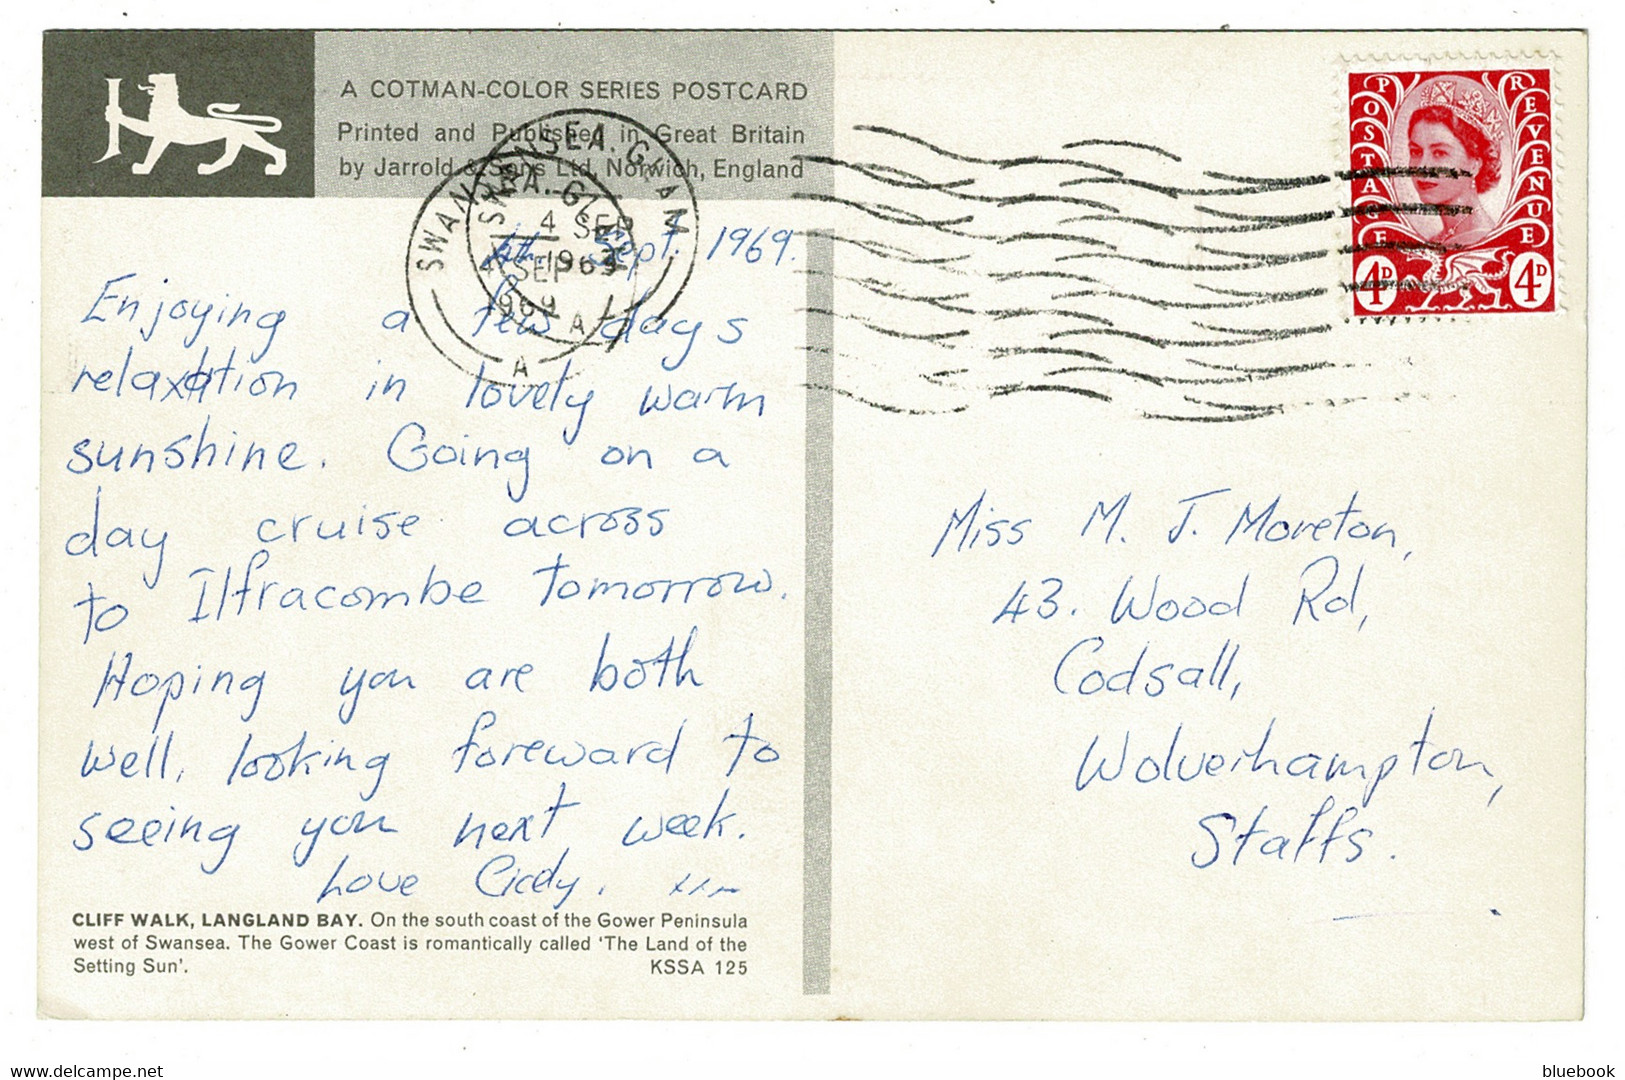 A COTMAN-COLOR SERIES POSTCARD
Printed and Published in Great Britain
by Jarrold & Sons Ltd, Norwich, England
SWANSEA. GLAM
4 SEP
1969
A
SWANSEA. GLAM
4 SEP
1969
A
POSTAGE REVENUE
4D 4D
4th Sept. 1969.
Enjoying a few days
relaxation in lovely warm
sunshine. Going on a
day cruise across
to Ilfracombe tomorrow.
Hoping you are both
well, looking foreward to
seeing you next week.
Love xxx
Miss M. J. Moreton,
43. Wood Rd,
Codsall,
Wolverhampton,
Staffs.
CLIFF WALK, LANGLAND BAY. On the south coast of the Gower Peninsula
west of Swansea. The Gower Coast is romantically called 'The Land of the
Setting Sun'. KSSA 125
bluebook